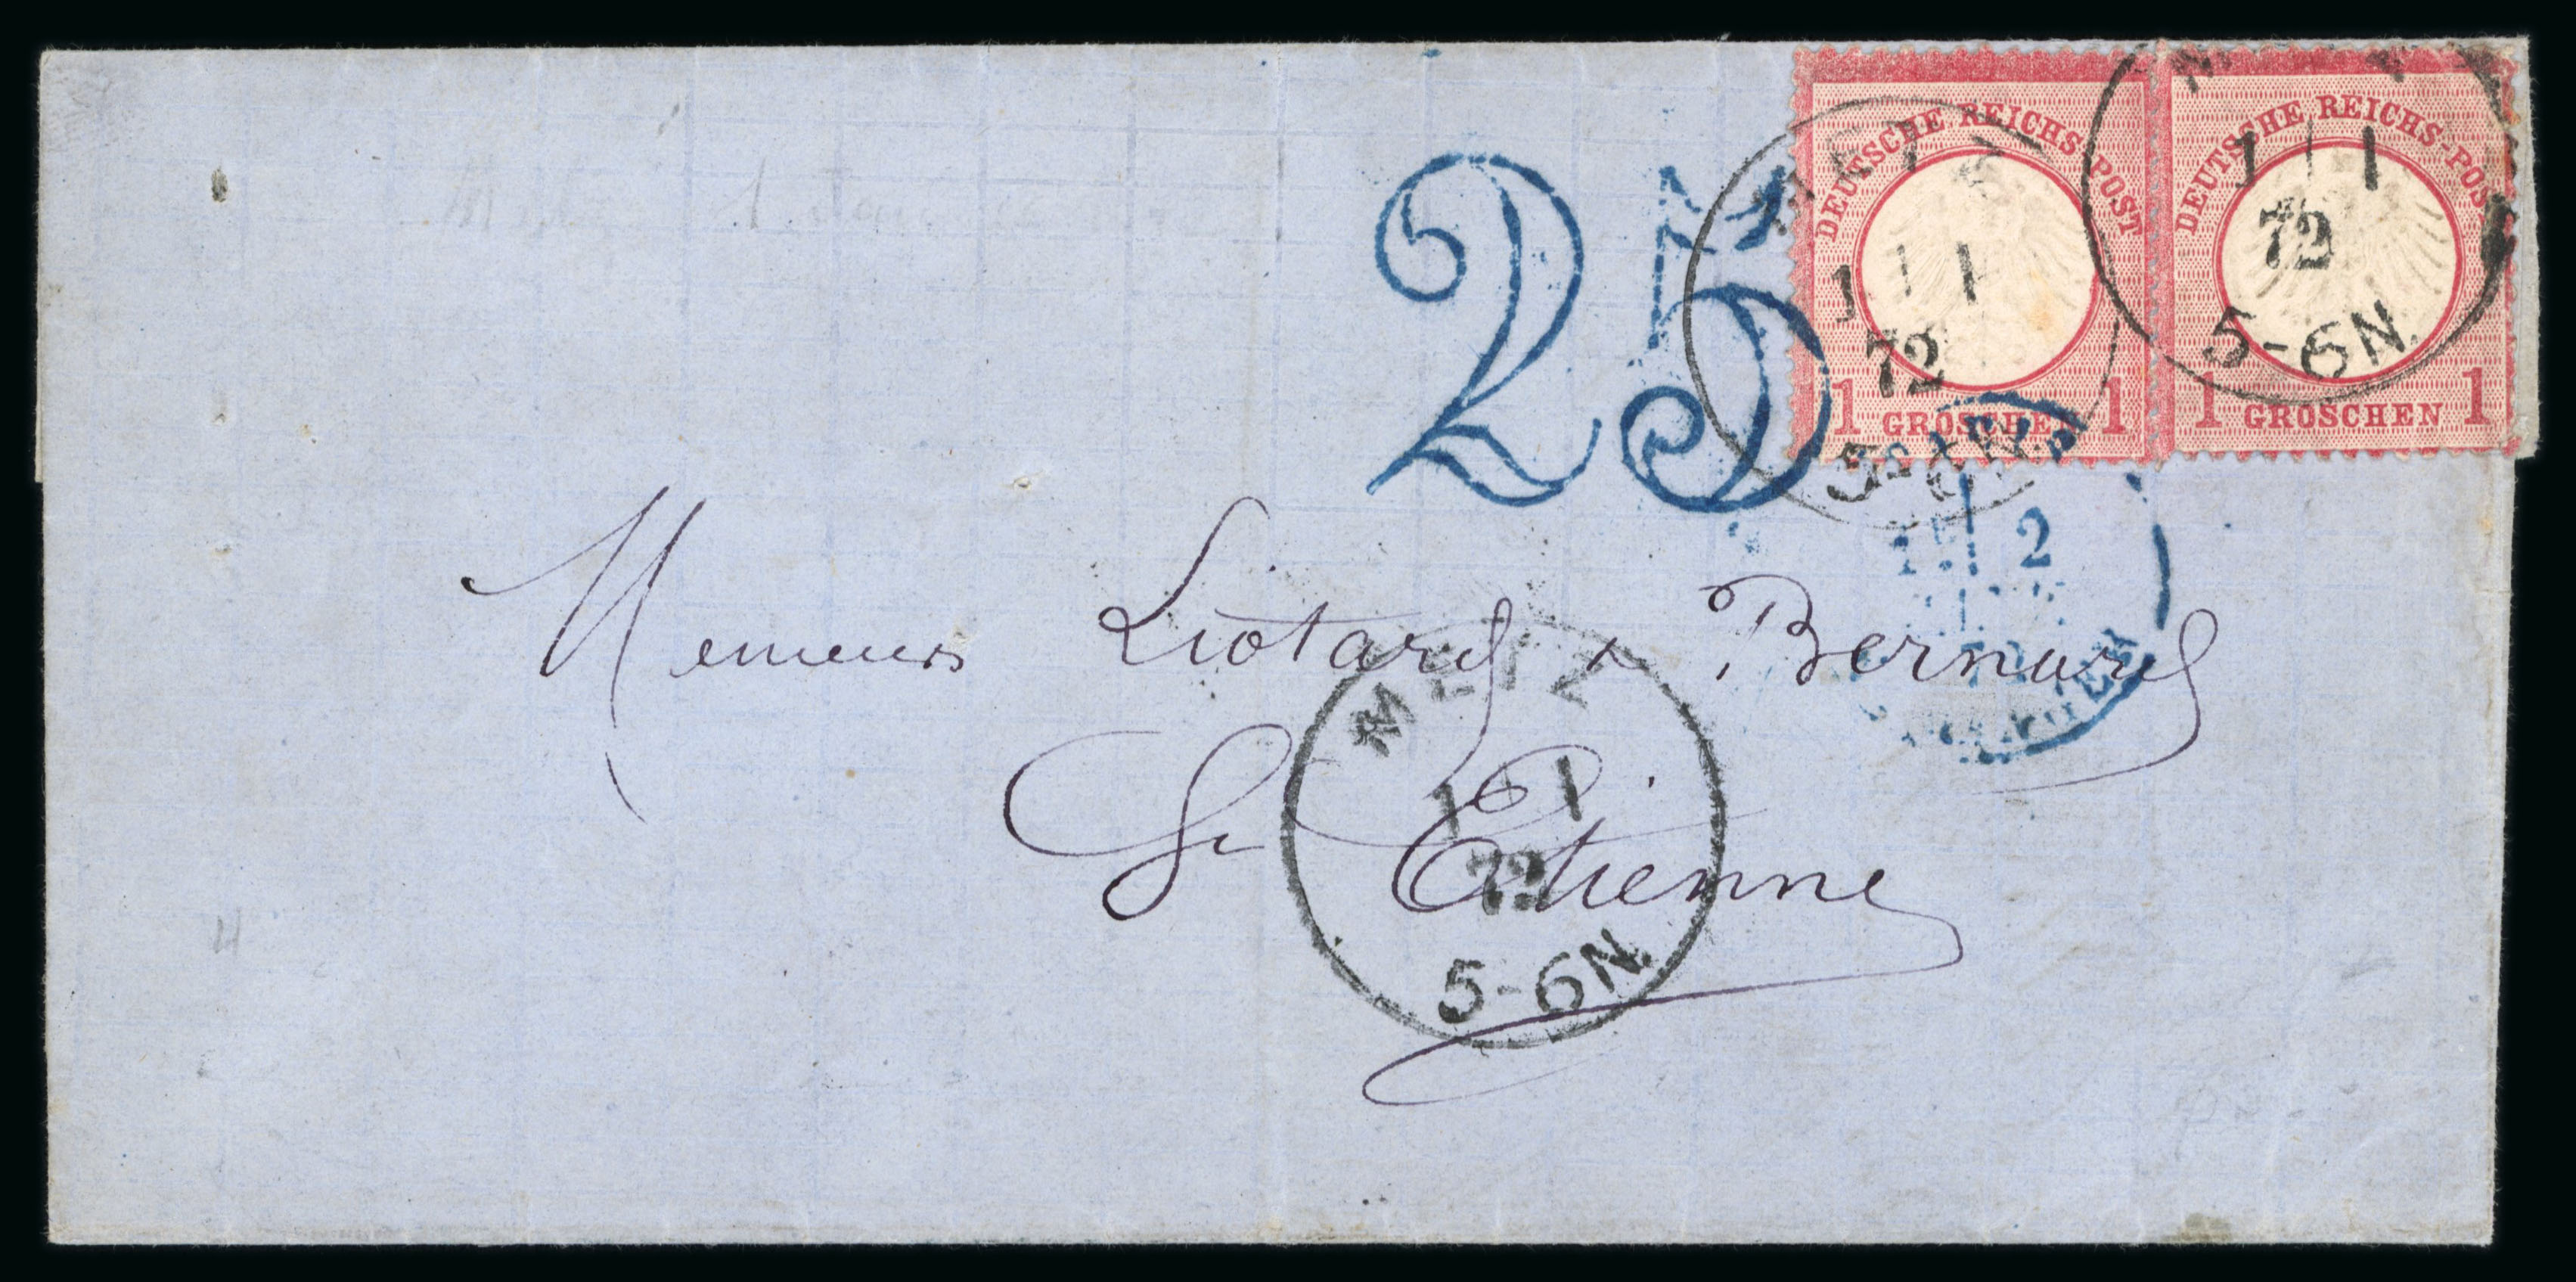 DEUTSCHE REICHS-POST
1 GROSCHEN 1
DEUTSCHE REICHS-POST
1 GROSCHEN 1
METZ
1 1
72
5-6N.
1 1
72
5-6N.
25
2
Messieurs Liotard & Bernard
St Etienne
METZ
1 1
72
5-6N.